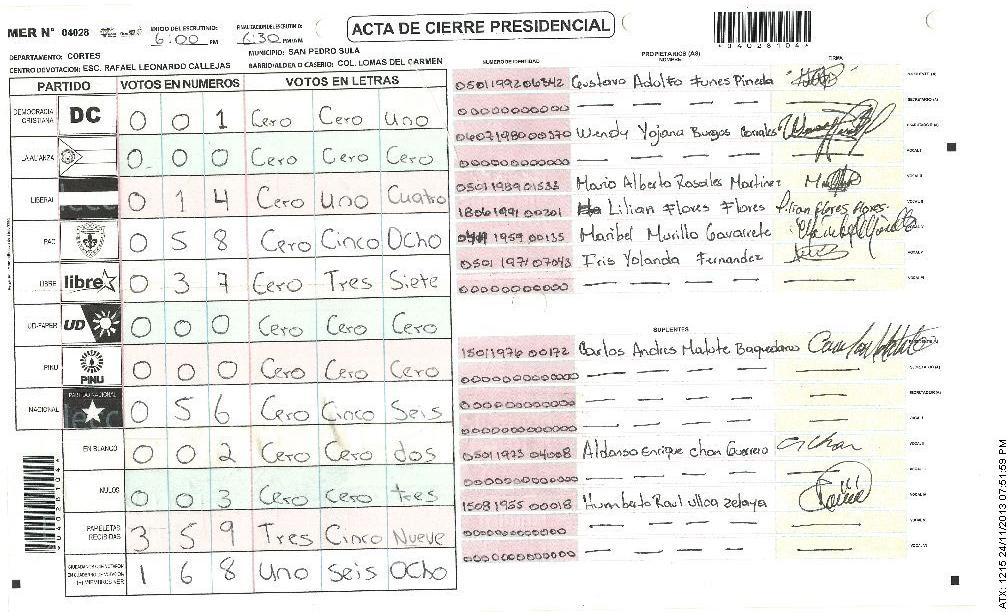 MER N° 04028
INICIO DEL ESCRUTINIO: 6:00 PM
FINALIZACION DEL ESCRUTINIO: 6:30 PM/AM
ACTA DE CIERRE PRESIDENCIAL
04028104
DEPARTAMENTO: CORTES
MUNICIPIO: SAN PEDRO SULA
CENTRO DE VOTACION: ESC. RAFAEL LEONARDO CALLEJAS
BARRIO/ALDEA O CASERIO: COL. LOMAS DEL CARMEN
PARTIDO VOTOS EN NUMEROS VOTOS EN LETRAS
DEMOCRACIA CRISTIANA DC 0 0 1 Cero Cero Uno
LA ALIANZA 0 0 0 Cero Cero Cero
LIBERAL 0 1 4 Cero Uno Cuatro
PAC 0 5 8 Cero Cinco Ocho
LIBRE libre 0 3 7 Cero Tres Siete
UD-FAPER UD 0 0 0 Cero Cero Cero
PINU PINU 0 0 0 Cero Cero Cero
NACIONAL PARTIDO NACIONAL 0 5 6 Cero Cinco Seis
EN BLANCO 0 0 2 Cero Cero dos
NULOS 0 0 3 Cero cero tres
PAPELETAS RECIBIDAS 3 5 9 Tres Cinco Nueve
1 6 8 Uno Seis Ocho
04028104
NUMERO DE IDENTIDAD PROPIETARIOS (AS) NOMBRE FIRMA
0501199206342 Gustavo Adolfo Funes Pineda
0000000000000
0607198000370 Wendy Yojana Burgos Corrales
0000000000000 VOCAL I
0501198901533 Mario Alberto Rosales Martinez VOCAL II
1806199100201 Lilian Flores Flores Lilian flores flores
1959 00135 Maribel Murillo Gavarrete VOCAL V
0501197107043 Iris Yolanda Fernandez
0000000000000
SUPLENTES
1501197600172 Carlos Andres Matute Baquedano
0000000000000 SECRETARIO (A)
0000000000000
0000000000000 VOCAL I
0501197304008 Enrique chan Guerrero
0000000000000
1508195500018 Humberto Raul ulloa zelaya
0000000000000
0000000000000 VOCAL VI
ATX: 1215 24/11/2013 07:51:59 PM